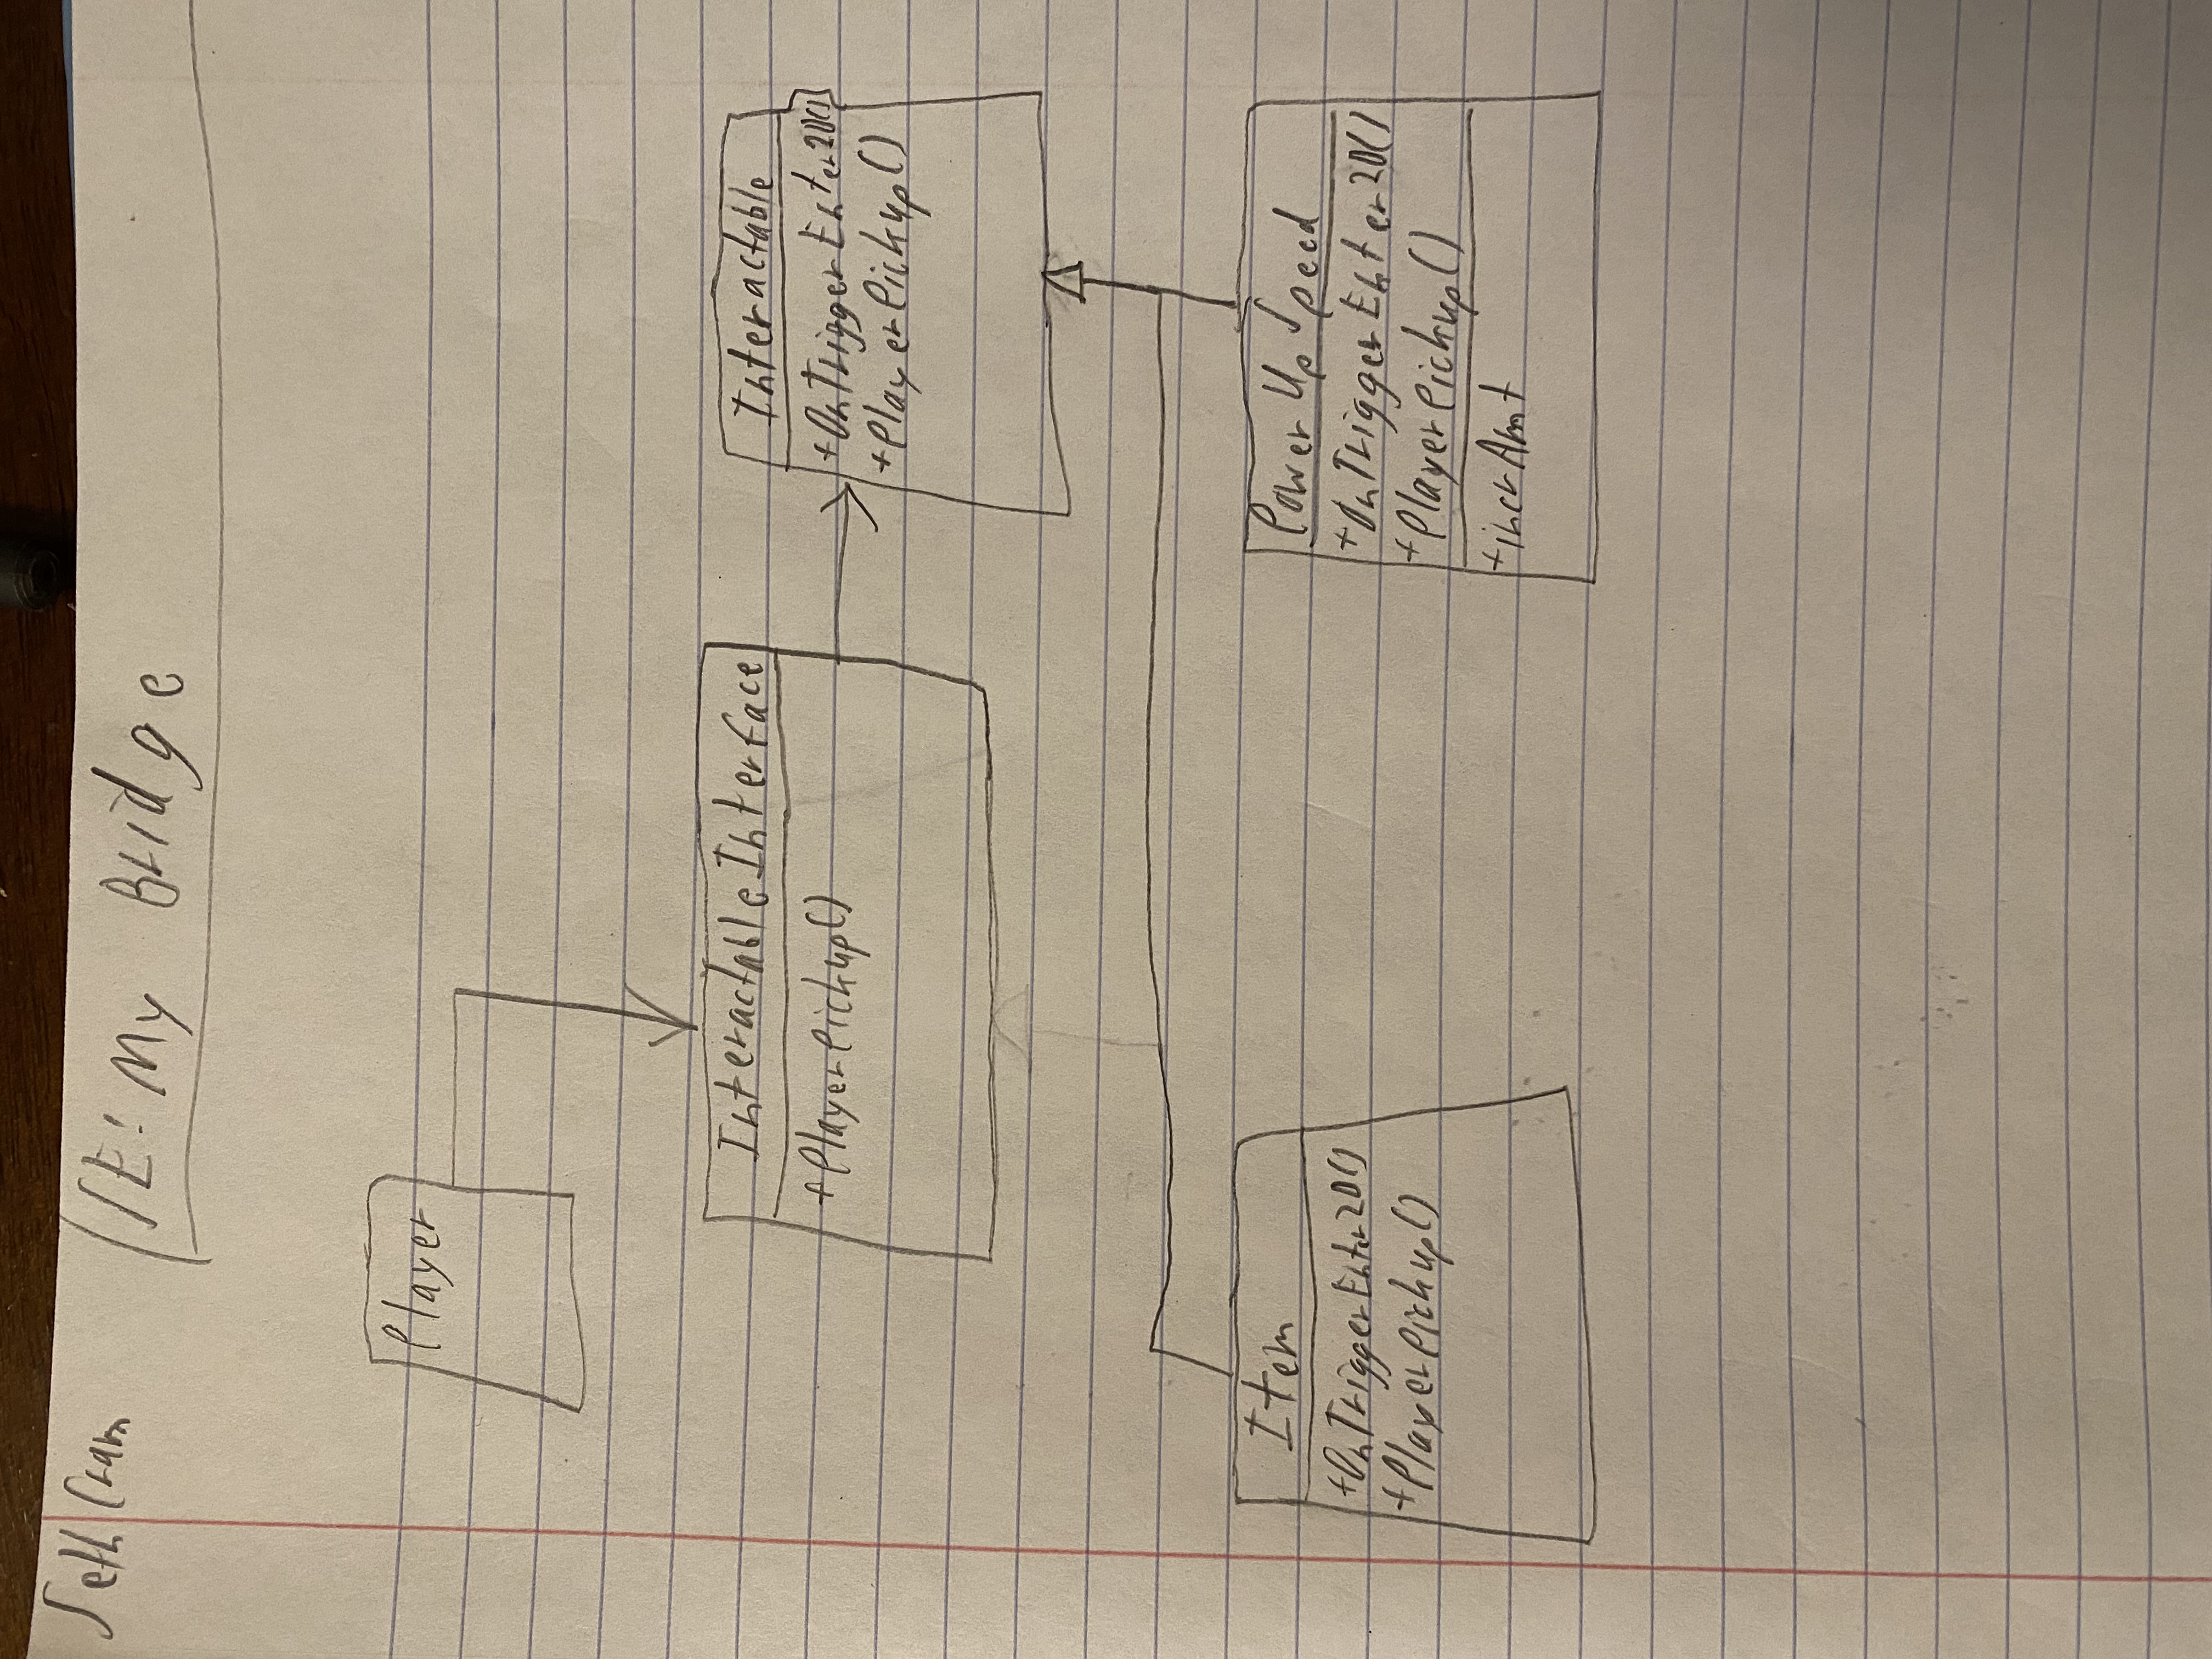 Seth Cram
SE: My Bridge
Player
InteractableInterface
+PlayerPickup()
Interactable
+OnTriggerEnter2D()
+PlayerPickup()
Item
+OnTriggerEnter2D()
+PlayerPickup()
PowerUpSpeed
+OnTriggerEnter2D()
+PlayerPickup()
+incrAmt